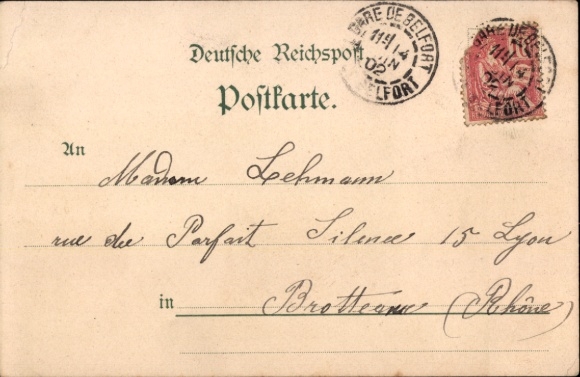 Deutsche Reichspost
Postkarte.
GARE DE BELFORT
11 14
02
BELFORT
GARE DE BELFORT
02
BELFORT
An
Madame Lehmann
rue du Parfait Silence 15 Lyon
in Brotteaux (Rhône)